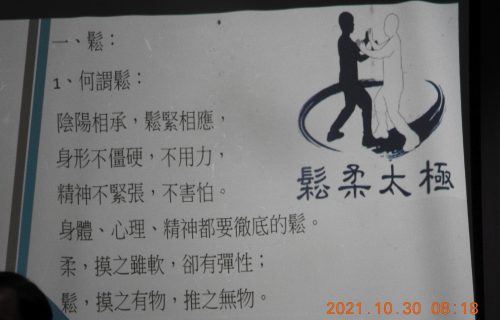 一、鬆：
1、何謂鬆：
陰陽相承，鬆緊相應，
身形不僵硬，不用力，
精神不緊張，不害怕。
身體、心理、精神都要徹底的鬆。
柔，摸之雖軟，卻有彈性；
鬆，摸之有物，推之無物。
鬆柔太極
2021.10.30 08:18